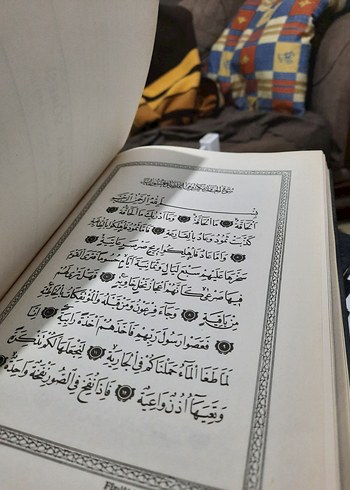 بِسْمِ اللَّهِ الرَّحْمَٰنِ الرَّحِيمِ
اَلْحَاقَّةُ ﴿١﴾ مَا الْحَاقَّةُ ﴿٢﴾ وَمَا أَدْرَاكَ مَا الْحَاقَّةُ ﴿٣﴾
كَذَّبَتْ ثَمُودُ وَعَادٌ بِالْقَارِعَةِ ﴿٤﴾ فَأَمَّا ثَمُودُ فَأُهْلِكُوا بِالطَّاغِيَةِ
﴿٥﴾ وَأَمَّا عَادٌ فَأُهْلِكُوا بِرِيحٍ صَرْصَرٍ عَاتِيَةٍ ﴿٦﴾
سَخَّرَهَا عَلَيْهِمْ سَبْعَ لَيَالٍ وَثَمَانِيَةَ أَيَّامٍ حُسُومًا فَتَرَى الْقَوْمَ
فِيهَا صَرْعَىٰ كَأَنَّهُمْ أَعْجَازُ نَخْلٍ خَاوِيَةٍ ﴿٧﴾ فَهَلْ تَرَىٰ لَهُمْ
مِنْ بَاقِيَةٍ ﴿٨﴾ وَجَاءَ فِرْعَوْنُ وَمَنْ قَبْلَهُ وَالْمُؤْتَفِكَاتُ بِالْخَاطِئَةِ
﴿٩﴾ فَعَصَوْا رَسُولَ رَبِّهِمْ فَأَخَذَهُمْ أَخْذَةً رَابِيَةً ﴿١٠﴾ إِنَّا
لَمَّا طَغَا الْمَاءُ حَمَلْنَاكُمْ فِي الْجَارِيَةِ ﴿١١﴾ لِنَجْعَلَهَا لَكُمْ تَذْكِرَةً
وَتَعِيَهَا أُذُنٌ وَاعِيَةٌ ﴿١٢﴾ فَإِذَا نُفِخَ فِي الصُّورِ نَفْخَةٌ وَاحِدَةٌ ﴿١٣﴾